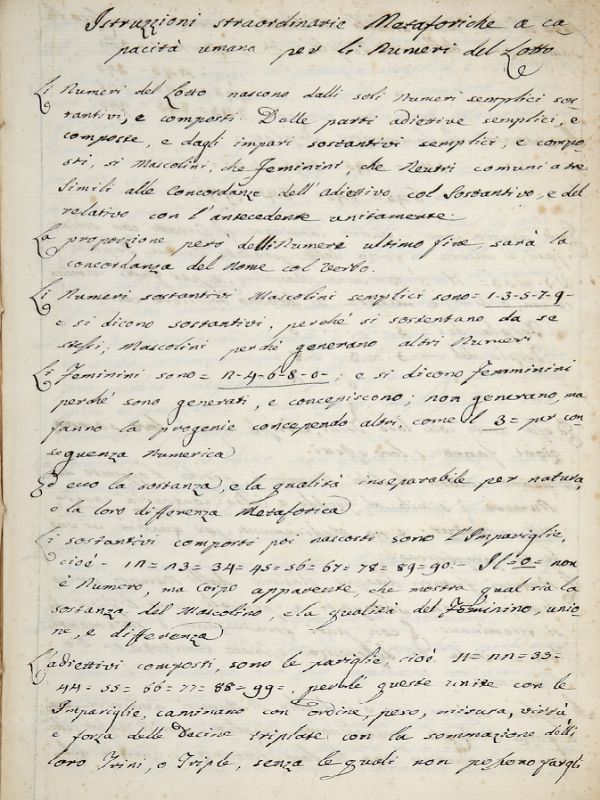 Istruzzioni straordinarie Metaforiche a ca
pacità umana per li Numeri del Lotto
Li Numeri del Lotto nascono dalli soli Numeri semplici sos
tantivi, e composti. Dalle parti adiettive semplici, e
composte, e dagli impari sostantivi semplici, e compo
sti, si Mascolini, che Feminini, che Neutri comuni a tre
simili alle Concordanze dell'Adiettivo col Sostantivo, e del
relativo con l'antecedente unitamente.
La proporzione però delli Numeri ultimo fine, sarà la
concordanza del Nome col Verbo.
Li Numeri sostantivi Mascolini semplici sono= 1-3-5-7-9-
e si dicono sostantivi, perché si sostentano da se
stessi; Mascolini perché generano altri Numeri
Li Feminini sono= n-4-6-8-0-; e si dicono Femminini
perché sono generati, e concepiscono; non generano, ma
fanno la progenie concependo altri, come l 3= per con
seguenza Numerica
Ed ecco la sostanza, e la qualità inseparabile per natura,
e la loro differenza Metaforica
Li sostantivi composti poi nascosti sono l'Impariglie,
cioé- 1n= n3= 34= 45= 56= 67= 78= 89= 90- Il=0= non
è Numero, ma Corpo apparente, che mostra qual sia la
sostanza del Mascolino, e la qualità del Feminino, unio
ne, e differenza
L'adiettivi composti, sono le pariglie, cioé 11= nn= 33=
44= 55= 66= 77= 88= 99=, perché queste unite con le
Impariglie, caminano con ordine, peso, misura, virtù
e forza delle Decine triplate con la sommazione delli
loro Trini, o Triple, senza le quali non possono fargli